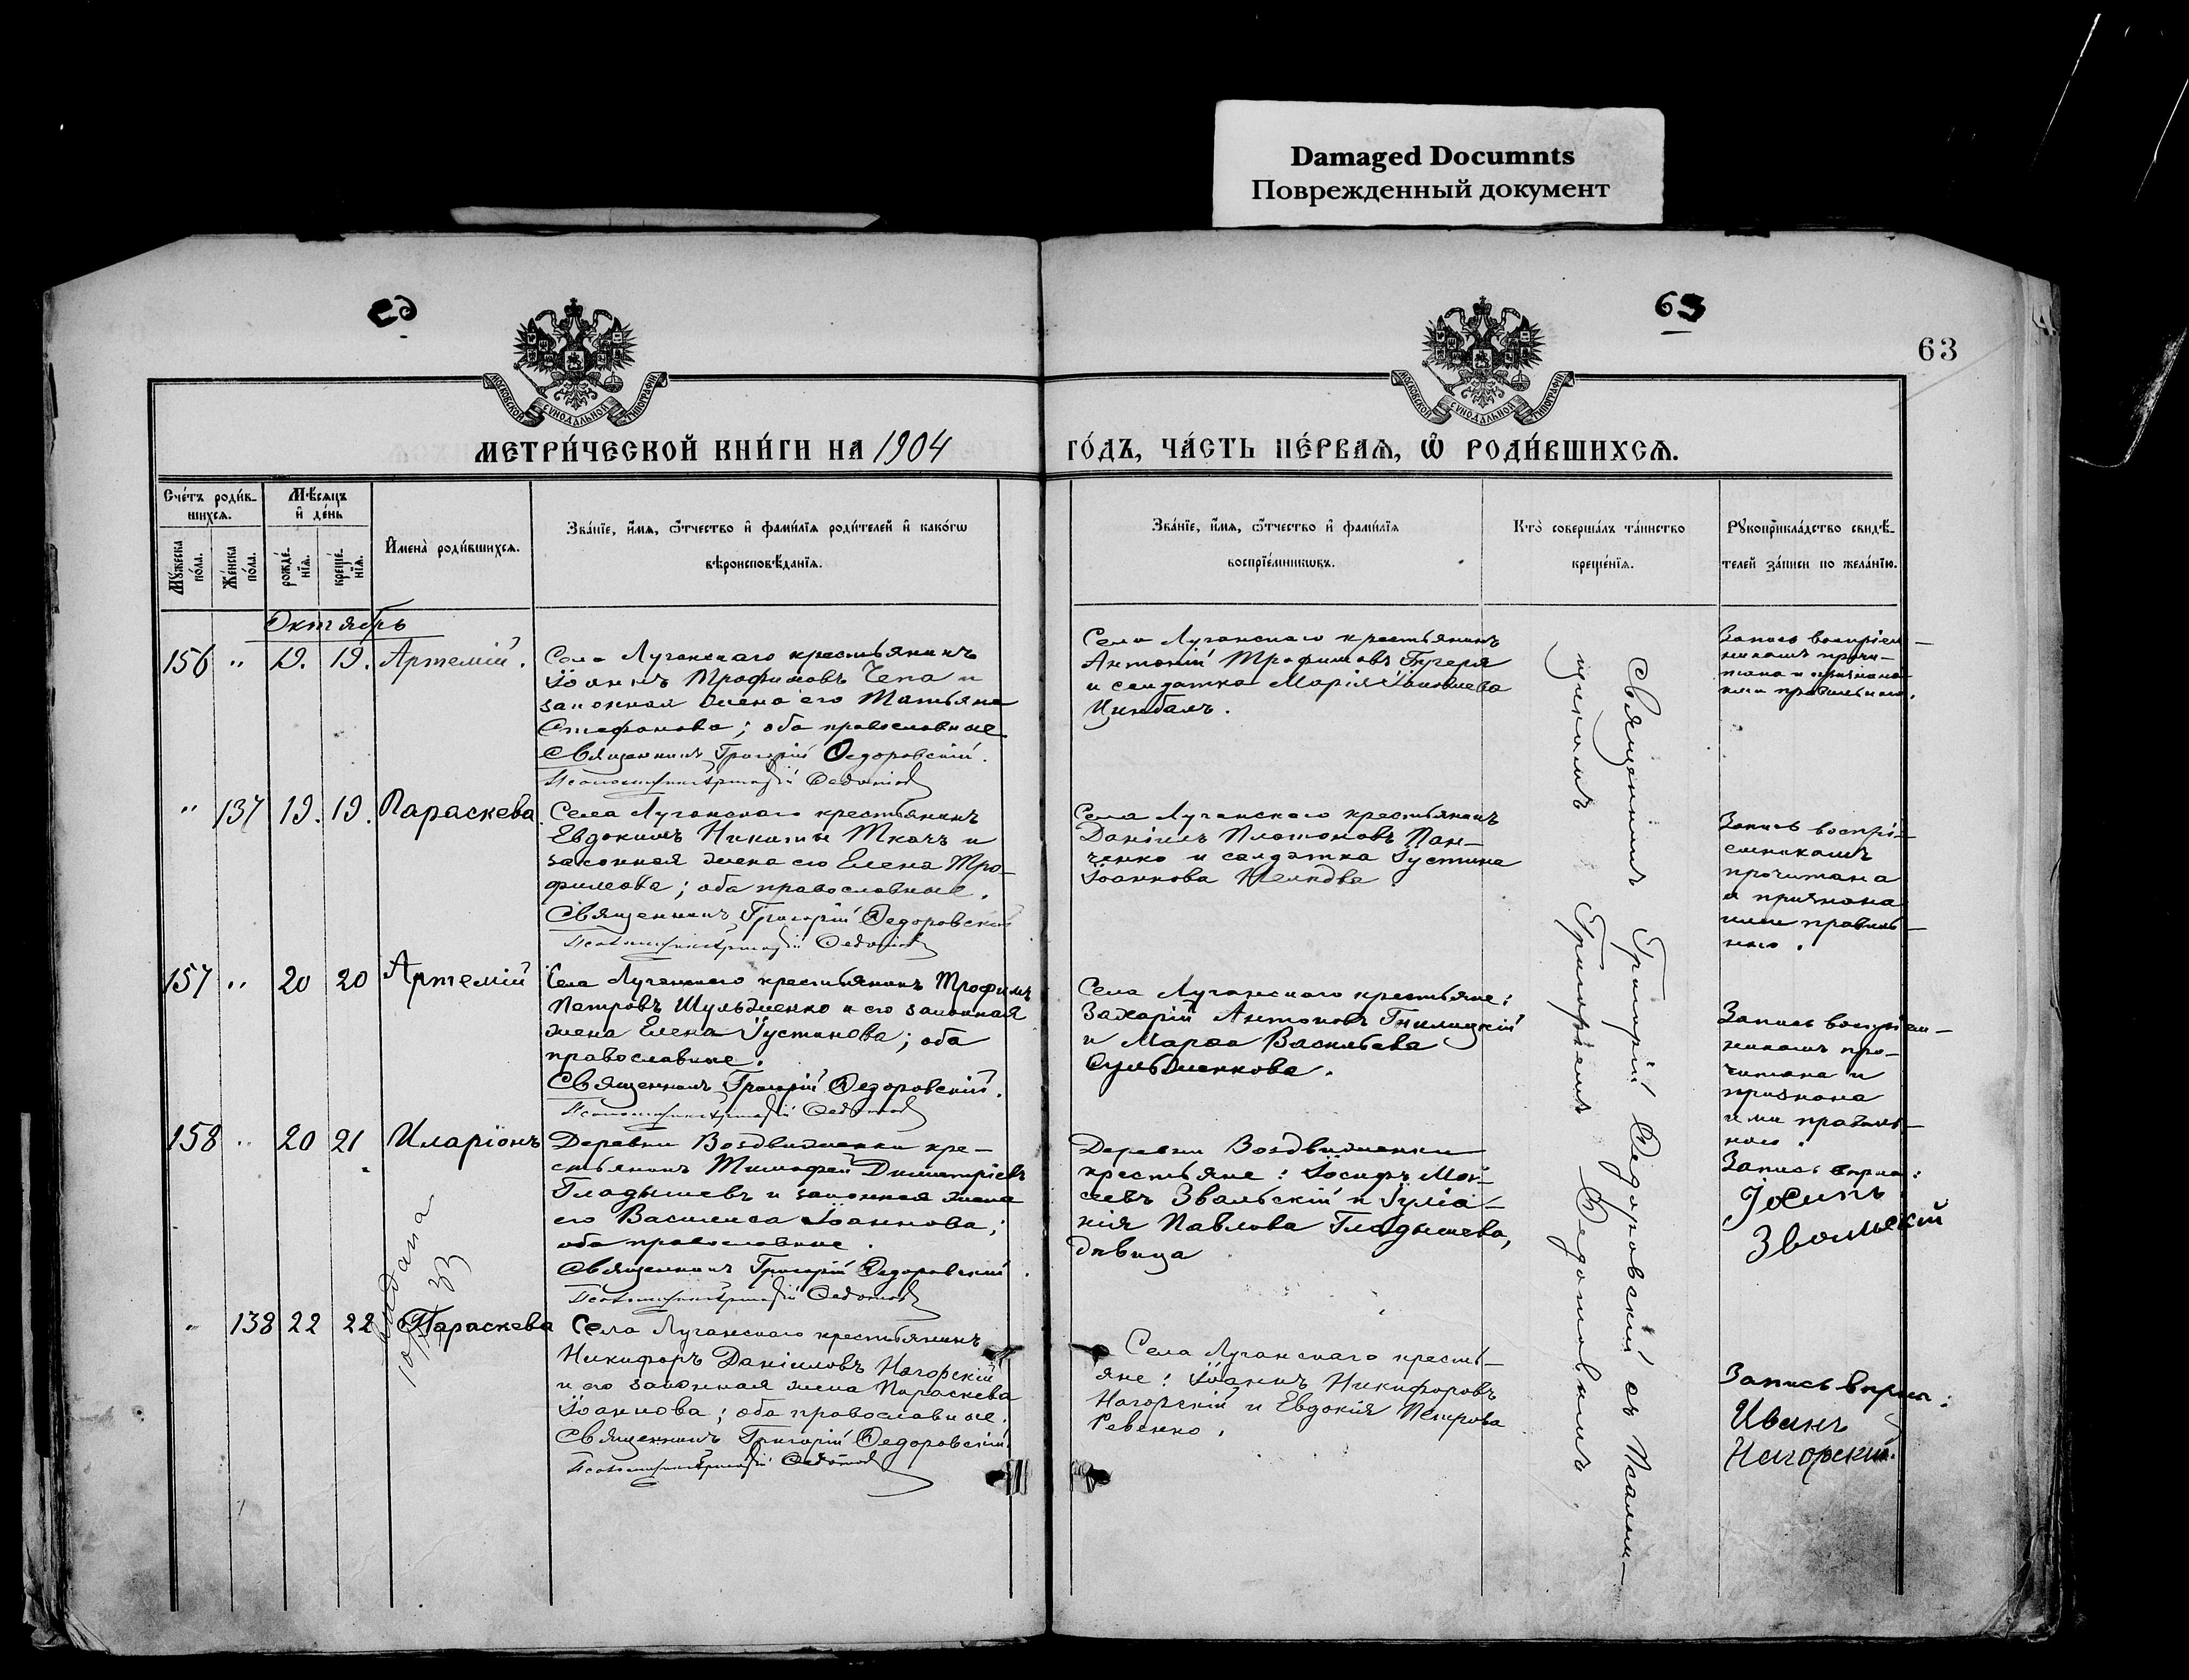 Damaged Documnts
Поврежденный документ
63
63
МОСКОВСКОЙ СѴНОДАЛЬНОЙ ТИПОГРАФІИ
МОСКОВСКОЙ СѴНОДАЛЬНОЙ ТИПОГРАФІИ
МЕТРИ́ЧЕСКОЙ КНИ́ГИ НА 1904
ГО́ДЪ, ЧА́СТЬ ПЕ́РВАѦ, Ѽ РОДИ́ВШИХСѦ.
Сче́тъ роди́в-
шихсѧ.
Мѣ́сѧцъ
и҆ де́нь
Мꙋ́жеска
по́ла.
Же́нска
по́ла.
рожде́-
нїѧ.
креще́-
нїѧ.
И҆мена̀ роди́вшихсѧ.
Зва́нїе, и҆́мѧ, ѻ҆́тчество и҆ фами́лїѧ роди́телей и҆ како́гѡ
вѣроисповѣ́данїѧ.
Зва́нїе, и҆́мѧ, ѻ҆́тчество и҆ фами́лїѧ
воспрїе́мникѡвъ.
Кто̀ соверша́лъ та́инство
креще́нїѧ.
Рꙋкоприкла́дство свидѣ́-
телей за́писи по жела́нїю.
Октябрь
156 " 19. 19. Артемій.
Села Луганскаго крестьянинъ
Іоаннъ Трофимовъ Чепа и
законная жена его Татьяна
Стефанова; оба православные
Священникъ Григорій Ѳедоровскій.
Села Луганскаго крестьянинъ
Антоній Трофимовъ
и солдатка Марія
Цимбалъ.
Запись воспріем-
никамъ прочи-
тана и признана
ими правильною.
" 137 19. 19. Параскева.
Села Луганскаго крестьянинъ
Евдокимъ Никиты Ткачъ и
законная жена его Елена Тро-
фимова; оба православные.
Священникъ Григорій Ѳедоровскій
Села Луганскаго крестьянинъ
Даніилъ Платоновъ Пан-
ченко и солдатка Іустина
Іоаннова
Запись воспрі-
емникамъ
прочитана
и признана
ими правиль-
ною.
157 " 20 20 Артемій
Села Луганскаго крестьянинъ Трофимъ
Петровъ Шульженко и его законная
жена Елена Іустинова; оба
православные.
Священникъ Григорій Ѳедоровскій.
Села Луганскаго крестьяне:
Захарій Антоновъ Гнилицкій
и Марѳа Васильева
Запись воспріем-
никамъ про-
читана и
признана
ими правиль-
ною.
158 " 20 21 Иларіонъ
Деревни Воздвиженки кре-
стьянинъ Тимофей Димитріевъ
Гладышевъ и законная жена
его Василиса Іоаннова;
оба православные.
Священникъ Григорій Ѳедоровскій.
Деревни Воздвиженки
крестьяне: Іосифъ Мои-
сеевъ Звальскій и Іуліа-
нія Павлова Гладышева,
дѣвица
Запись
Іосипъ
" 138 22 22 Параскева
Села Луганскаго крестьянинъ
Никифоръ Даніиловъ Нагорскій
и его законная жена Параскева
Іоаннова; оба православные.
Священникъ Григорій Ѳедоровскій.
Села Луганскаго кресть-
яне: Іоаннъ Никифоровъ
Нагорскій и Евдокія Петрова
Ревенко.
Запись
Иванъ
Нагорский.
Священникъ Григорій Ѳедоровскій съ Псалом-
щикомъ Григоріемъ